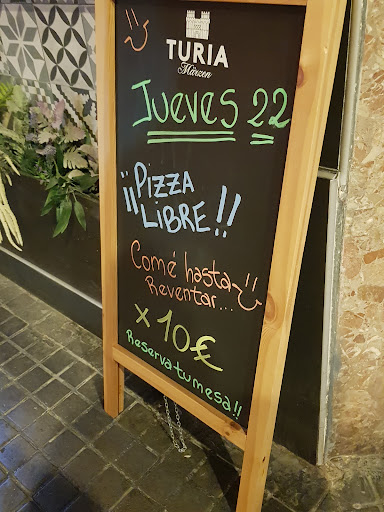 TURIA
Märzen
Jueves 22
¡¡PIZZA
LIBRE!!
Comé hasta
Reventar...
x 10€
Reserva tu mesa!!